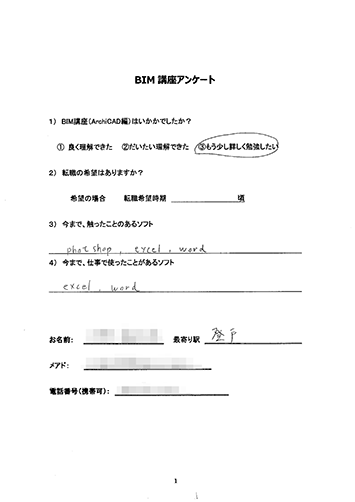 BIM 講座アンケート
1) BIM講座(ArchiCAD編)はいかかでしたか?
① 良く理解できた ②だいたい理解できた ③もう少し詳しく勉強したい
2) 転職の希望はありますか?
希望の場合 転職希望時期 頃
3) 今まで、触ったことのあるソフト
phot shop , excel , word
4) 今まで、仕事で使ったことがあるソフト
excel , word
お名前: 最寄り駅 登戸
メアド:
電話番号(携帯可):
1